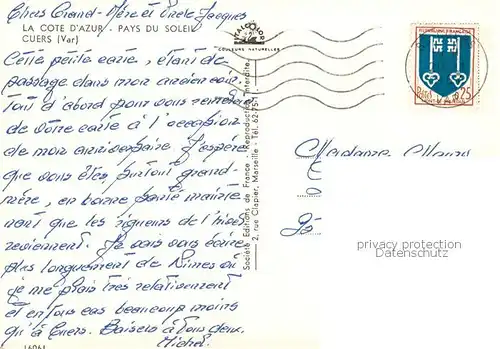 Chers Grand-Mère et Oncle Jacques
LA COTE D'AZUR - PAYS DU SOLEIL
CUERS (Var)
Cette petite carte, étant de
passage dans mon ancien coin
tout d'abord pour vous remercier
de votre carte à l'occasion
de mon anniversaire. J'espère
que vous êtes surtout grand-
mère, en bonne santé mainte
nant que les rigueurs de l'hiver
reviennent. Je vais vous écrire
plus longuement de Nîmes où
je me plais très relativement
et en tous cas beaucoup moins
qu'à Cuers. Baisers à tous deux.
Michel.
COULEURS NATURELLES
Société Editions de France - Reproduction interdite
2, rue Clapier, Marseille - Tél. 62-75
REPUBLIQUE FRANÇAISE
0,25
Madame
privacy protection
Datenschutz